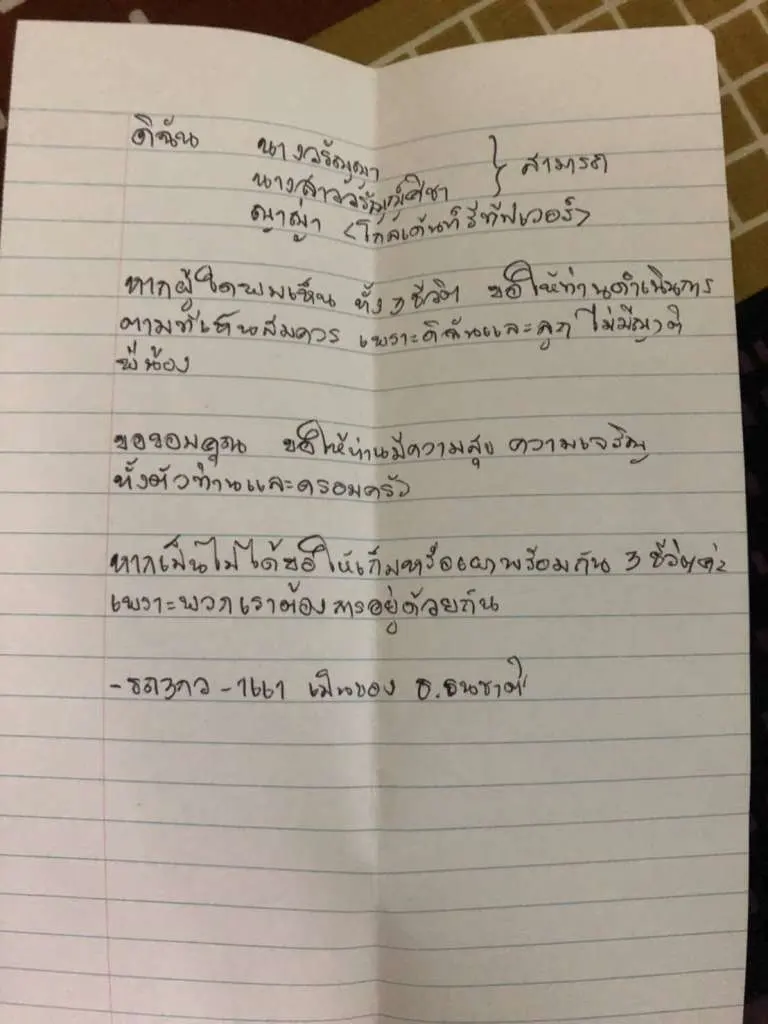 ดิฉัน นางวรัญญา
นางสาว } สามารถ
ญาญ่า <โกลเด้นท์รีทีฟเวอร์>
หากผู้ใดพบเห็น ทั้ง 3 ชีวิต ขอให้ท่านดำเนินการ
ตามที่เห็นสมควร เพราะดิฉันและลูก ไม่มีญาติ
พี่น้อง
ขอขอบคุณ ขอให้ท่านมีความสุข ความเจริญ
ทั้งตัวท่านและครอบครัว
หากเป็นไปได้ขอให้เก็บหรือเผาพร้อมกัน 3 ชีวิตค่ะ
เพราะพวกเราต้องการอยู่ด้วยกัน
- รถ3กว - 1661 เป็นของ ธ.ธนชาติ